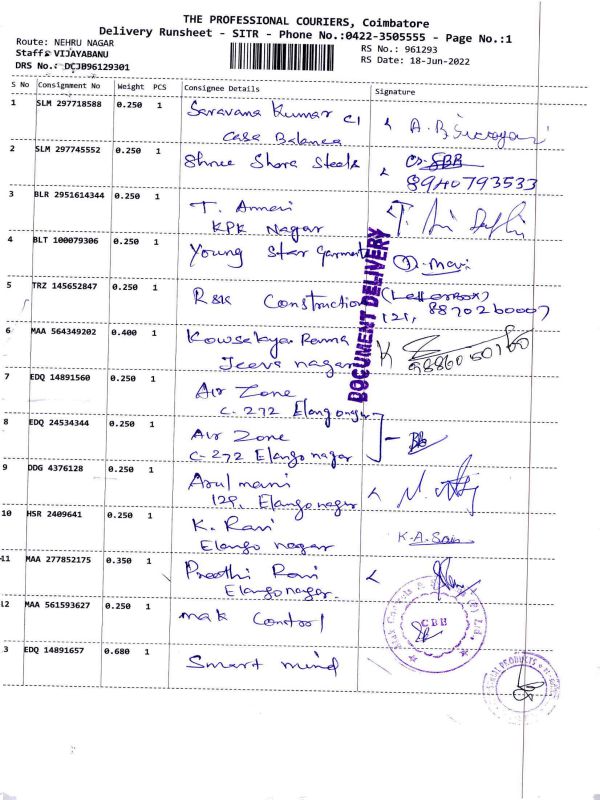 THE PROFESSIONAL COURIERS, Coimbatore
Delivery Runsheet - SITR - Phone No.:0422-3505555 - Page No.:1
Route: NEHRU NAGAR
Staff: VIJAYABANU
DRS No.: DCJB96129301
RS No.: 961293
RS Date: 18-Jun-2022
S No Consignment No Weight PCS Consignee Details Signature
1 SLM 297718588 0.250 1 Saravana Kumar C1
Casa Balanca
2 SLM 297745552 0.250 1 Shree Shara Steels
8940793533
3 BLR 2951614344 0.250 1 T. Anmani
KPK Nagar
4 BLT 100079306 0.250 1 Young Star Garments
5 TRZ 145652847 0.250 1 R&K Construction (Letterbox)
121, 8870260007
6 MAA 564349202 0.400 1 Kowsalya Rama
Jeeva nagar 9886050160
7 EDQ 14891560 0.250 1 Air Zone
C-272 Elangonagar
8 EDQ 24534344 0.250 1 Air Zone
C-272 Elango nagar
9 DDG 4376128 0.250 1 Arul mani
129, Elangonagar
10 HSR 2409641 0.250 1 K. Ravi
Elango nagar
11 MAA 277852175 0.350 1 Preethi Ravi
Elangonagar.
12 MAA 561593627 0.250 1 mak Control
CBE
3 EDQ 14891657 0.680 1 Smart mind
DOCUMENT DELIVERY